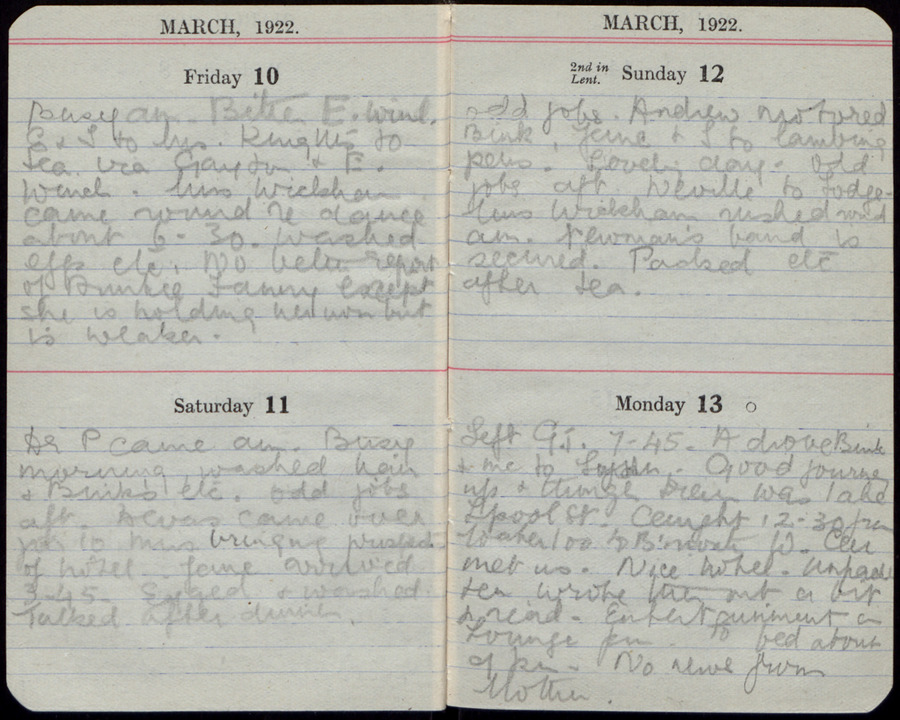 MARCH, 1922.
Friday 10
Busy am. Bitter E. wind.
& I to Mrs. Knights to
tea via Gayton & E.
Winch. Miss Wickham
came round re dance
about 6-30. Washed
effs etc. No better report
of Auntie Fanny except
she is holding her own but
is weaker.
Saturday 11
Dr P came am. Busy
morning washed hair
& Bink's etc. odd jobs
aft. came over
to Miss bringing prospect
of hotel. Jane arrived
3-45. & washed
Talked after dinner.
MARCH, 1922.
2nd in Lent. Sunday 12
odd jobs. Andrew motored
Bink, Jane & I to lambing
pens. Lovely day. Odd
jobs aft. Neville to
Miss Wickham rushed round
am. Newman's band is
secured. Packed etc
after tea.
Monday 13
Left G.T. 7-45. A drove Bink
& me to Lynn. Good journey
up & though train was late
L'pool St. Caught 12-30 from
Waterloo to B'mouth W. Car
met us. Nice hotel. Unpacked
tea wrote then out a bit
& read. Entertainment in
Lounge pm. To bed about
pm. No news from
Mother.